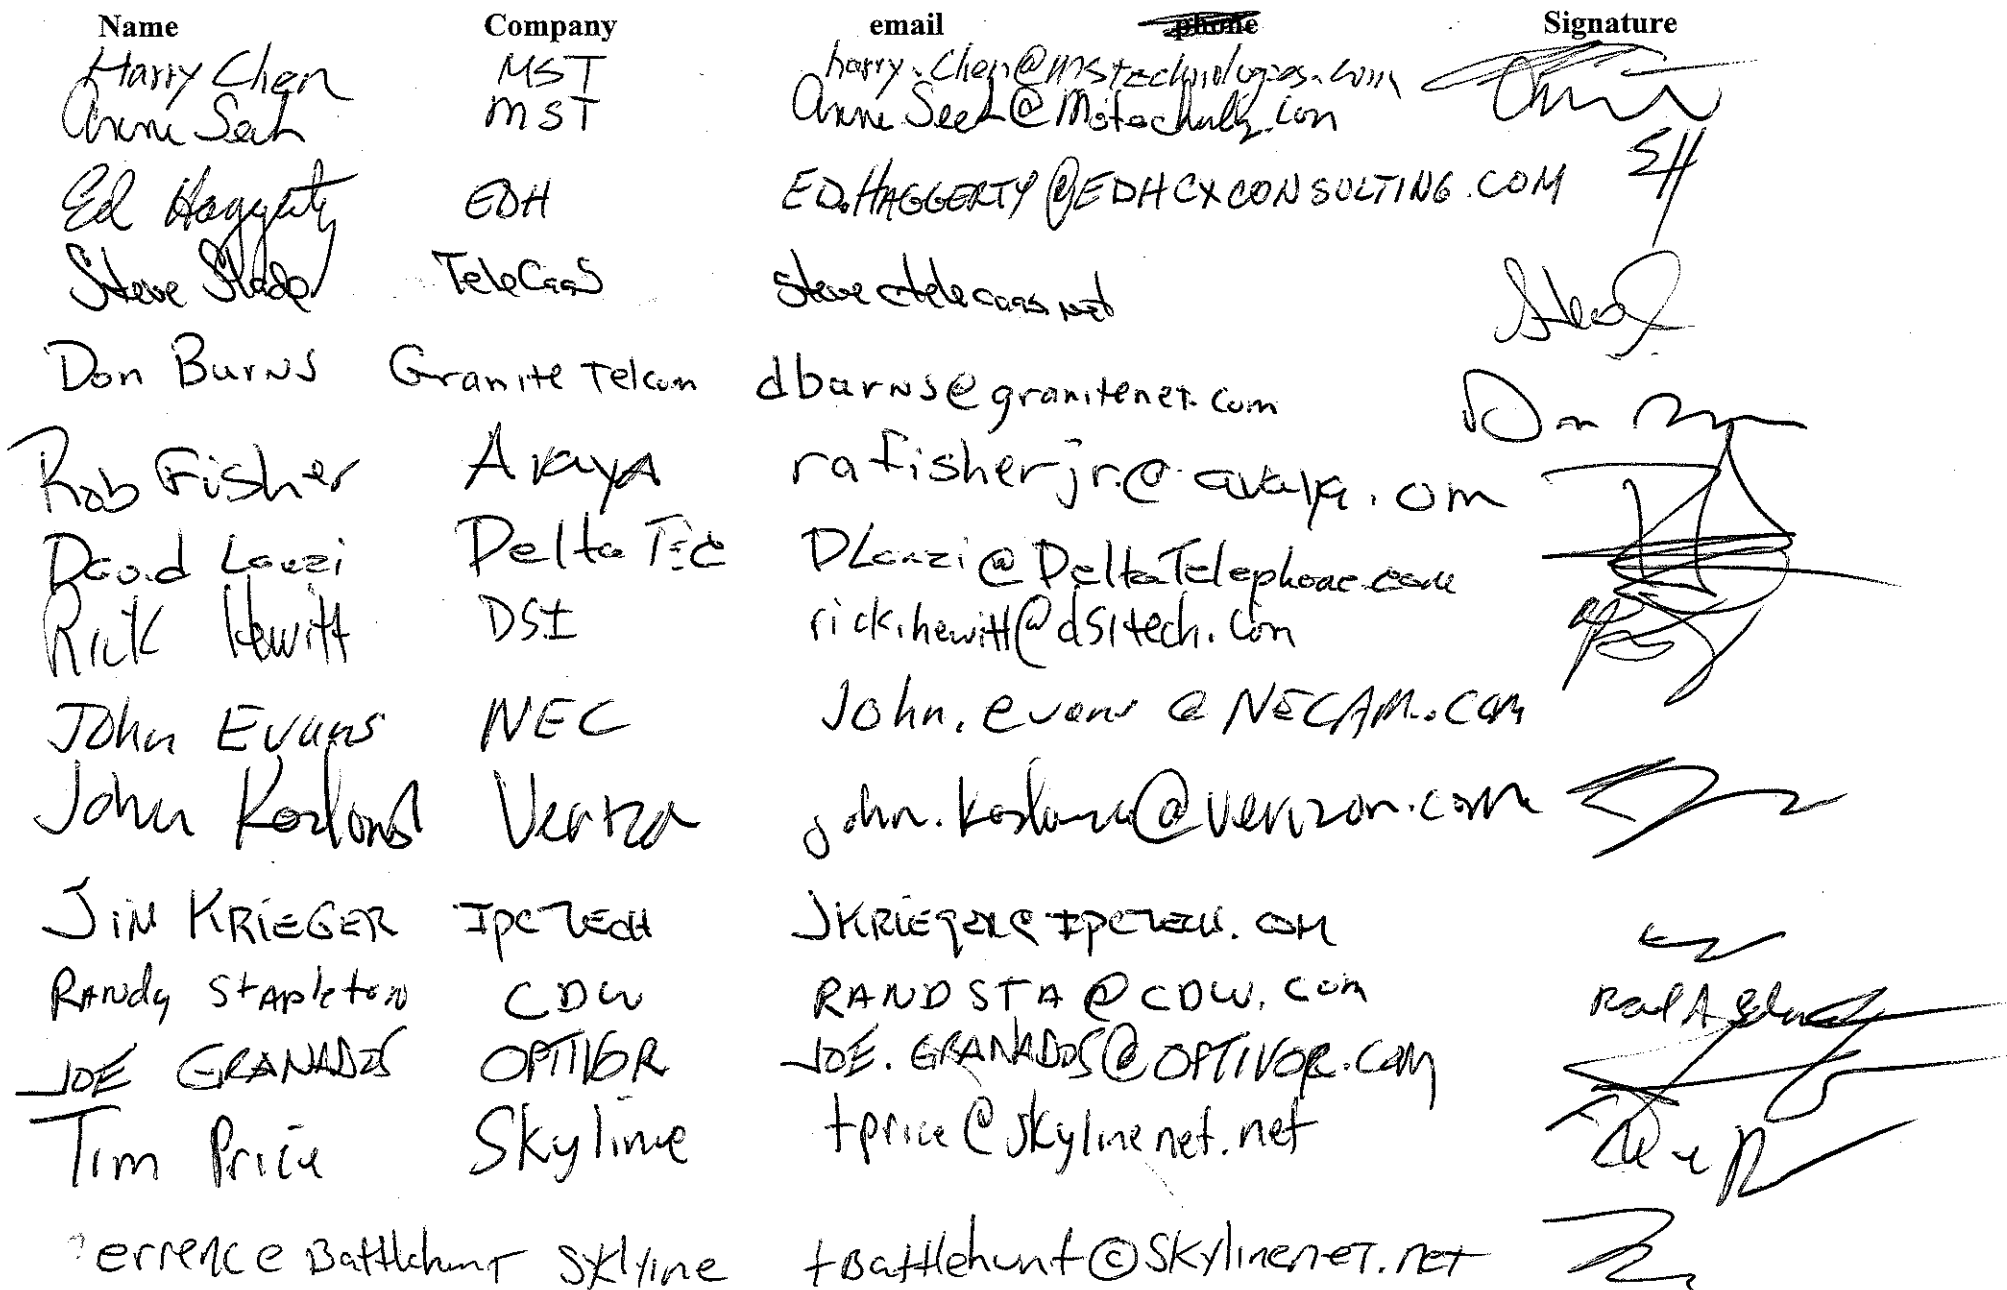 Name Company email phone Signature
Harry Chen MST harry.chen@mstechnologies.com
Anne MST
Ed Haggerty EDH ED.HAGGERTY@EDHCXCONSULTING.COM EH
Steve Slade TeleCaaS steve@telecaas.net
Don Burns Granite Telcom dburns@granitenet.com Don
Rob Fisher Avaya rafisherjr@avaya.com
David Lauzi Delta DLauzi@DeltaTelephone.com
Rick Hewitt DSI rick.hewitt@dsitech.com
John Evans NEC John.evans@NECAM.com
John Verizon
JIM KRIEGER IPC TECH JKRIEGER@IPCTECH.COM
Randy Stapleton CDW RANDSTA@CDW.com
JOE GRANADOS OPTIVOR JOE.GRANADOS@OPTIVOR.COM
Tim Price Skyline tprice@skylinenet.net
errence Battlehunt Skyline tBattlehunt@Skylinenet.net